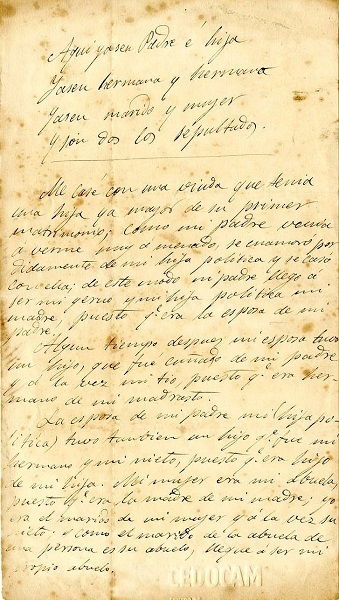 Aqui yasen Padre é hija
Yasen hermana y hermano
Yasen marido y mujer
Y son dos los sepultados.
Me casé con una viuda que tenia
una hija ya mayor de su primer
matrimonio; Como mi padre venia
á verme muy á menudo, se enamoró per
didamente de mi hija politica y se casó
con ella; de este modo mi padre llegó á
ser mi yerno y mi hija politica mi
madre, puesto qe. era la esposa de mi
padre.
Algun tiempo despues mi esposa tuvo
un hijo, que fué cuñado de mi padre
y á la vez mi tio, puesto qe. era her-
mano de mi madrasta.
La esposa de mi padre mi (hija po-
litica) tuvo tambien un hijo qe. fue mi
hermano y mi nieto, puesto qe. era hijo
de mi hija. Mi mujer era mi abuela
puesto qe. era la madre de mi madre; yo
era el marido de mi mujer y á la vez su
nieto; y como el marido de la abuela de
una persona es su abuelo, llegué a ser mi
propio abuelo.
CEDOCAM